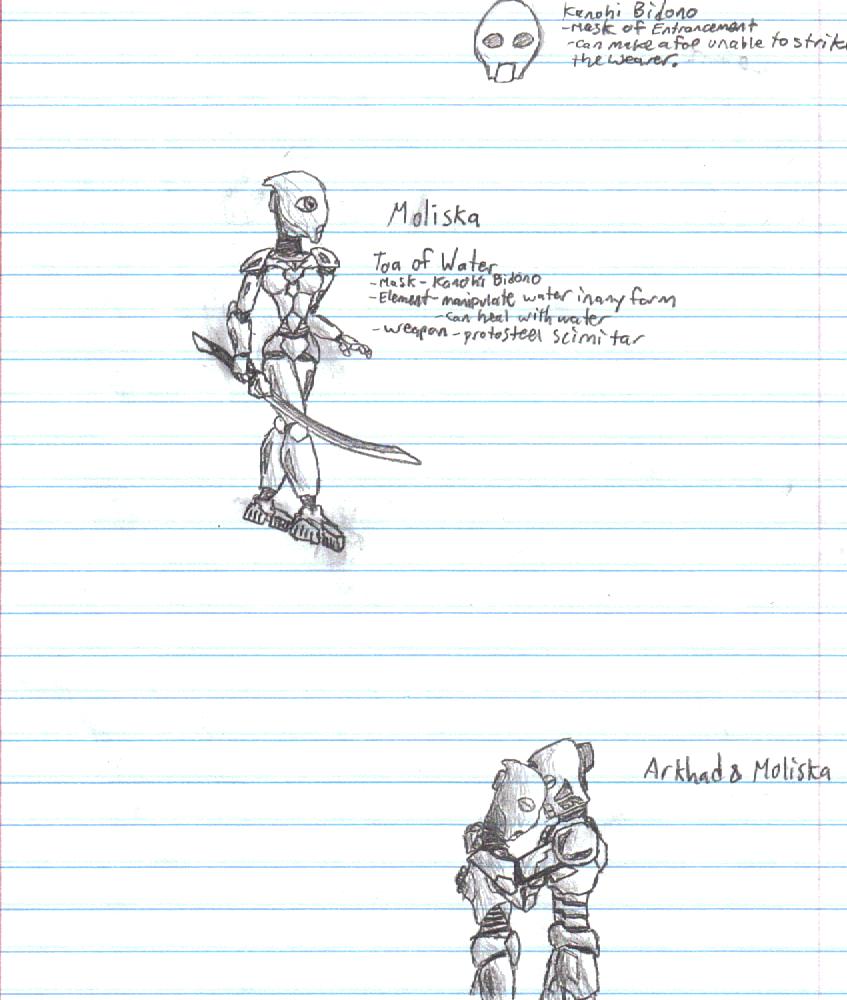 Kanohi Bidono
-Mask of Entrancement
-can make a foe unable to strike
the wearer.
Moliska
Toa of Water
-Mask-Kanohi Bidono
-Element-manipulate water in any form
-can heal with water
-weapon-protosteel scimitar
Arkhad & Moliska